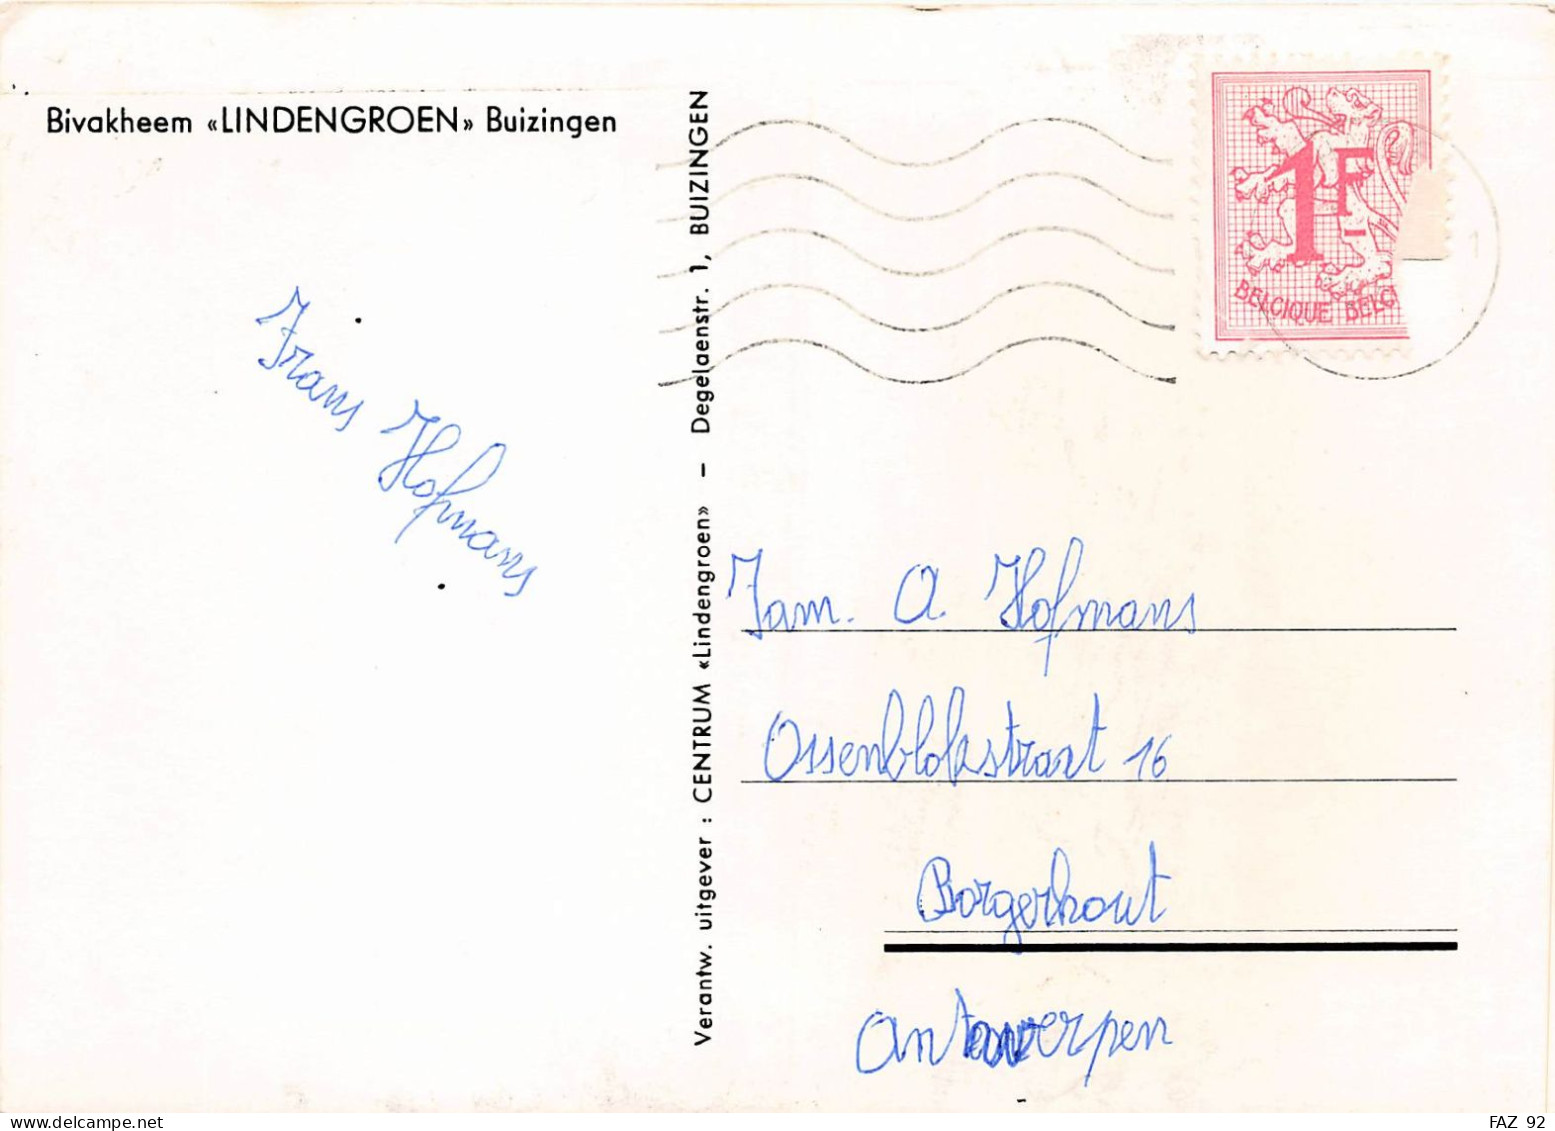 Bivakheem «LINDENGROEN» Buizingen
Frans Hofmans
Verantw. uitgever : CENTRUM «Lindengroen» – Degelaenstr. 1, BUIZINGEN
1F
BELGIQUE BELG
1
Fam. A. Hofmans
Ossenblokstraat 16
Borgerhout
Antwerpen
FAZ 92